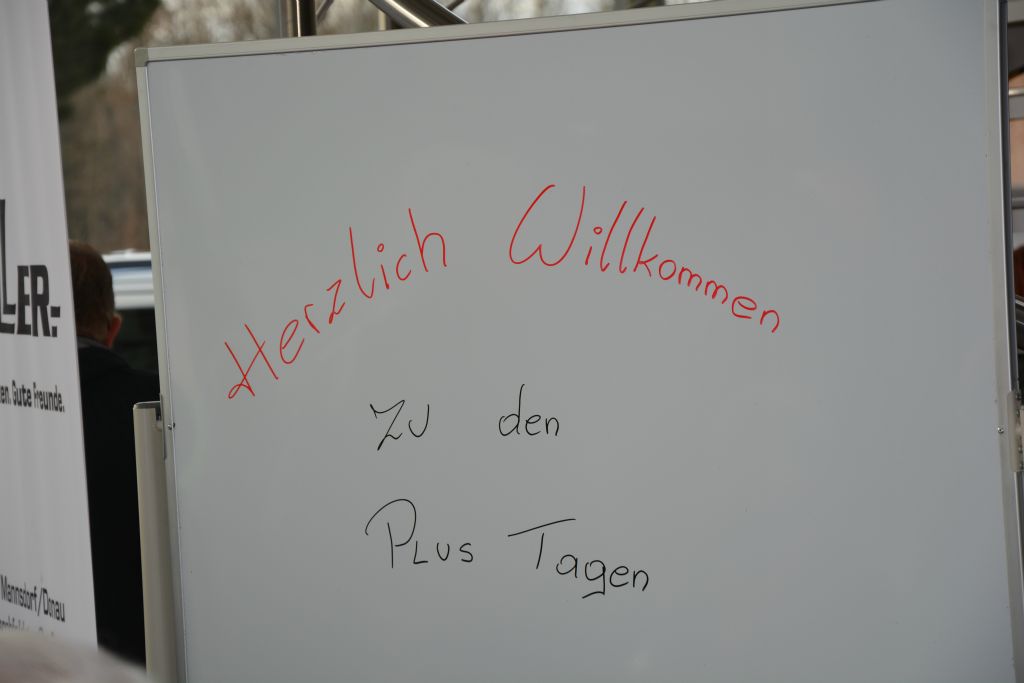 Herzlich Willkommen
zu den
Plus Tagen
LER.
Gute Freunde.
Mannsdorf/Donau